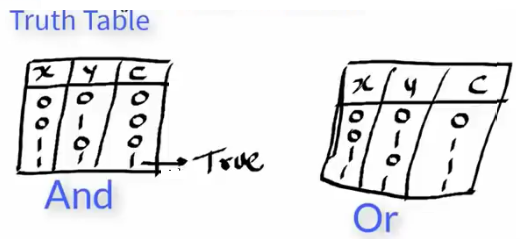 Truth Table
x y c
0 0 0
0 1 0
1 0 1
1 1 1 → True
And
x y c
0 0 0
0 1 1
1 0 1
1 1 1
Or